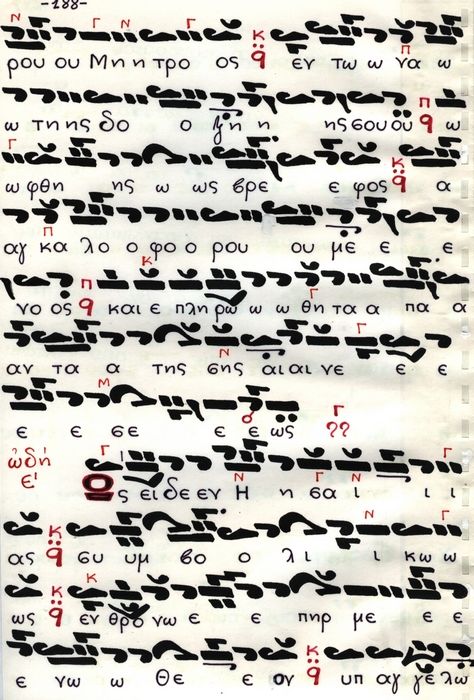 -188-
ρου ου Μη η τρο ος εν τω ω να ω
ω τη ης δο ο ξη η ης σου οὺ ω
ω φθη ης ω ως βρε ε φος α
αγ κα λο ο φο ο ρου ου με ε ε
νο ος και ε πλη ρω ω ω θη τα α πα α
αν τα α της σης αι αι νε ε ε
ε ε σε ε ε ως
ὠδή
ε'
Ως ει δε εν Η η σα ι ι ι
ας συ υμ βο ο λι ι κω ω
ως εν θρο νω ε ε πηρ με ε ε
ε νω ω Θε ε ον υπ αγ γε λω